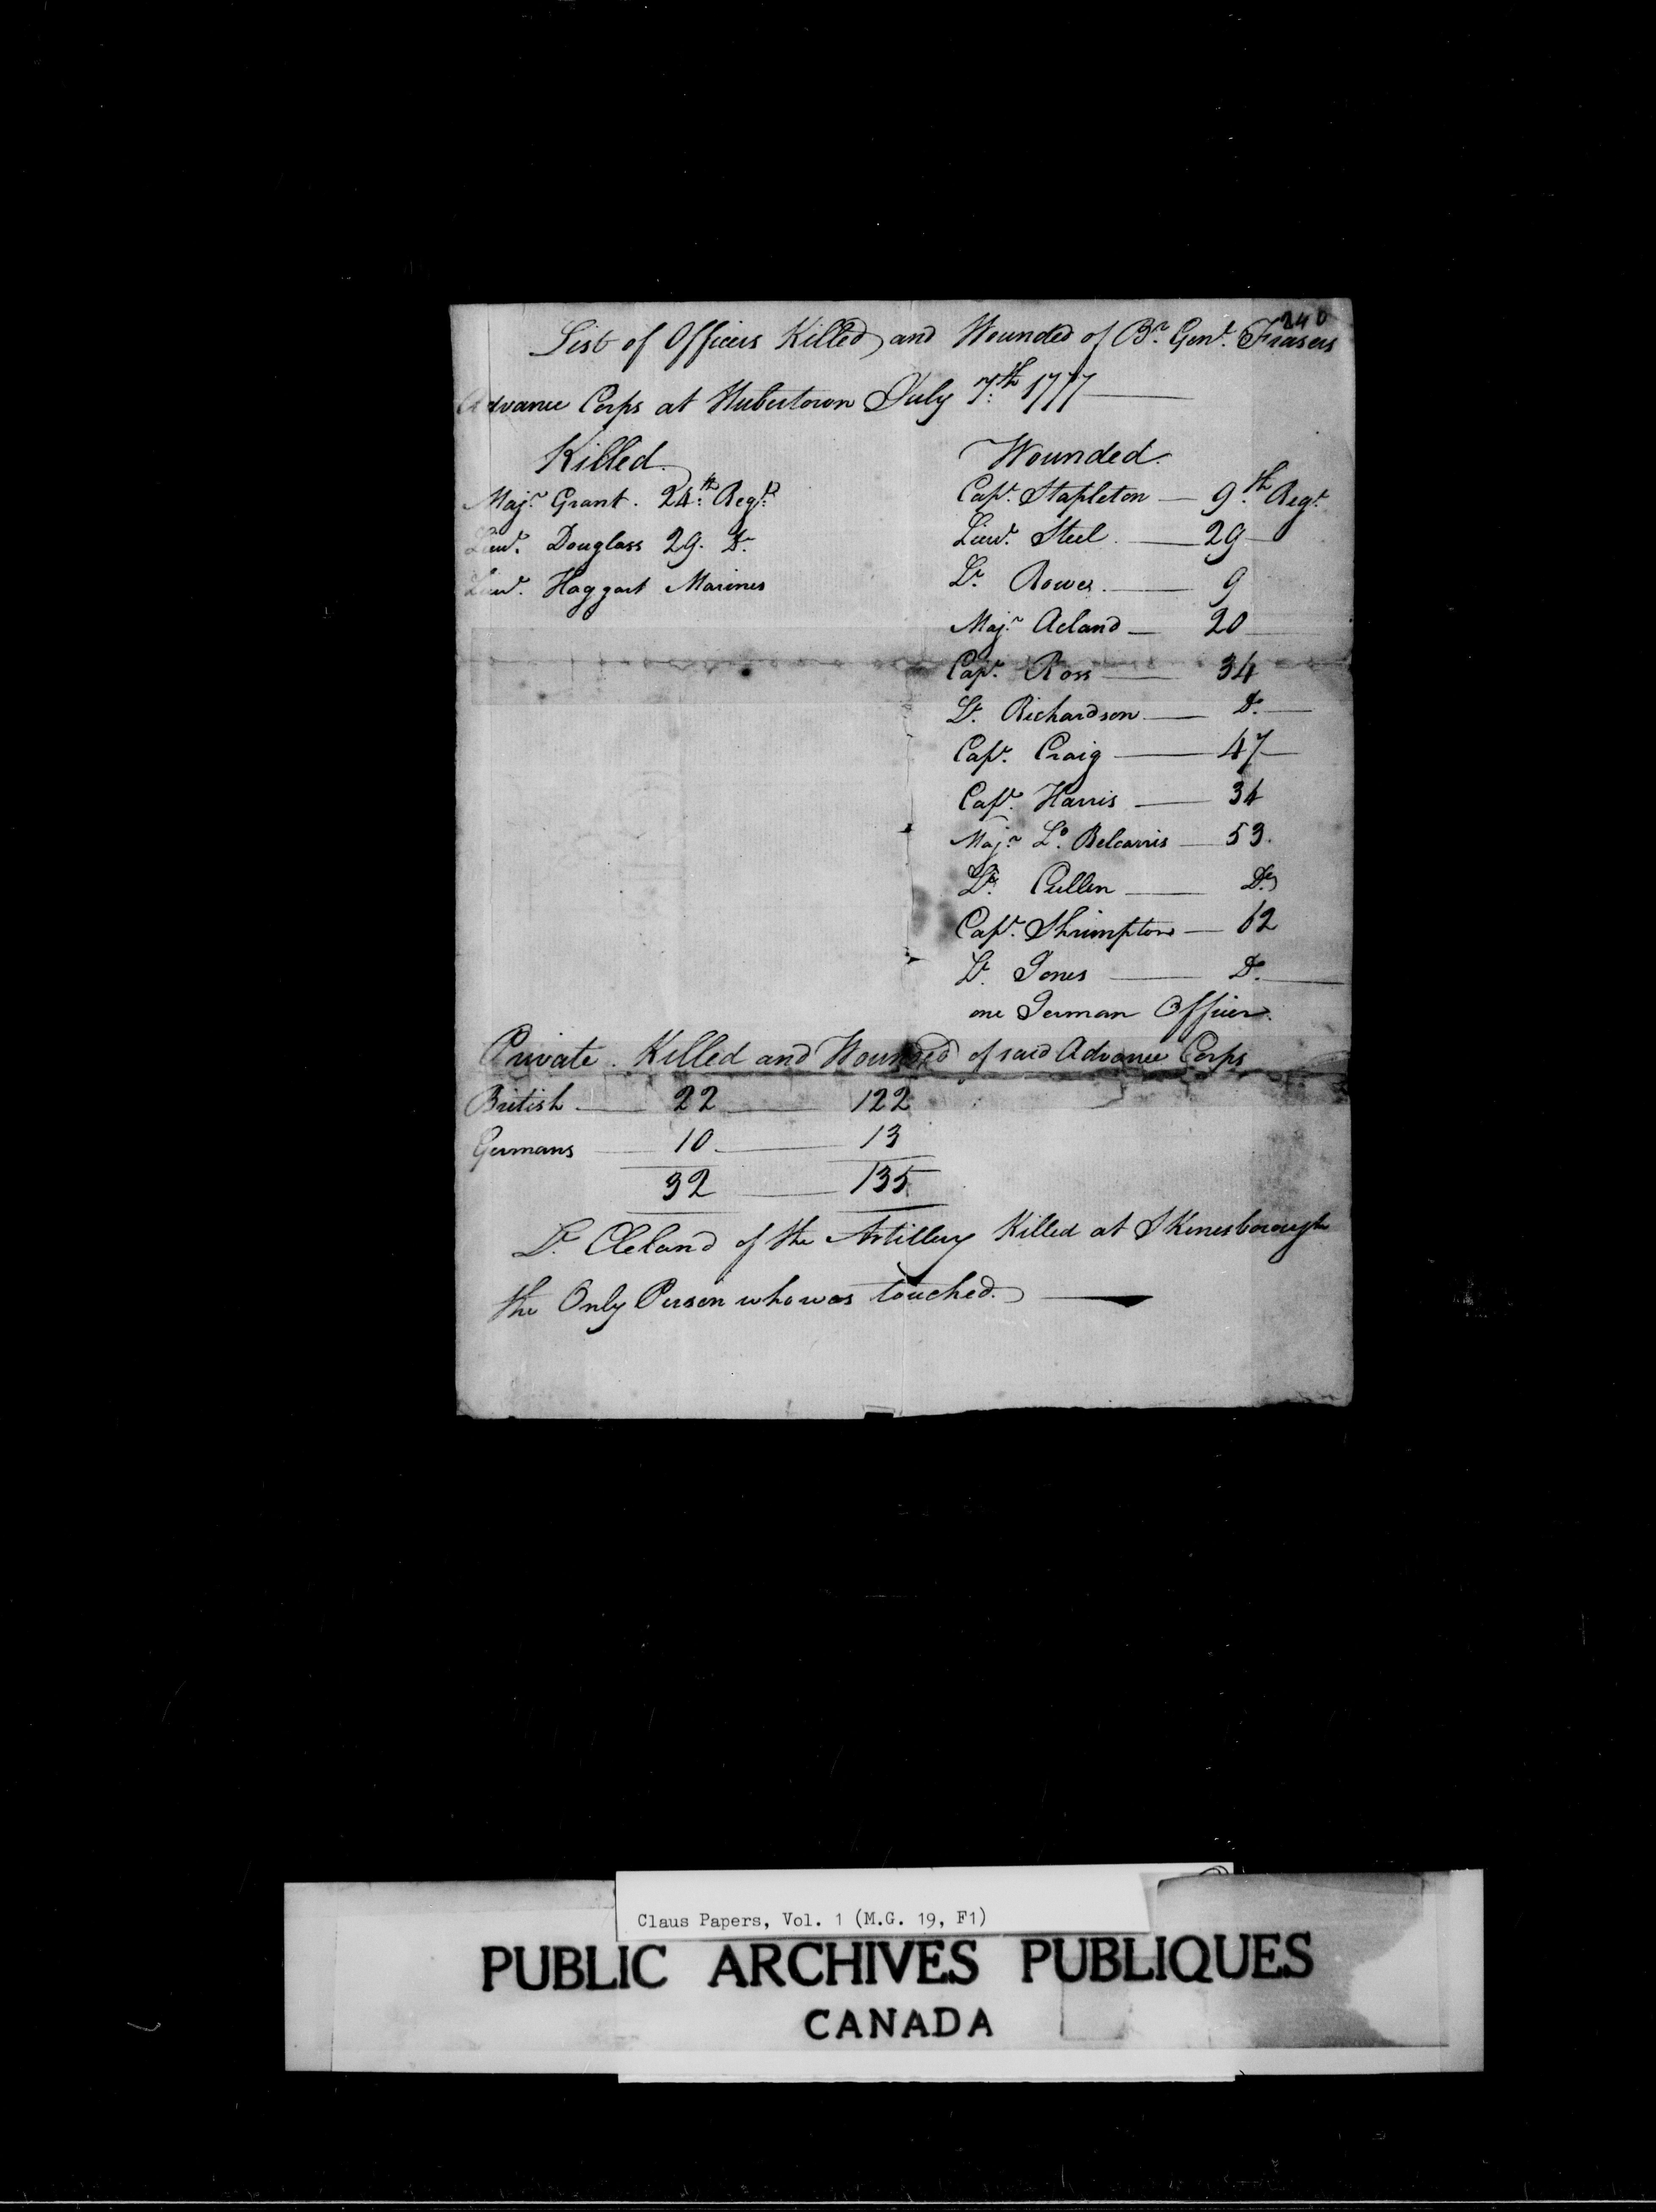 240
List of Officers Killed and Wounded of Br. Genl. Frasers
Advance Corps at Hubertown July 7th 1777
Killed
Majr. Grant. 24th Regt.
Lieut. Douglass 29. Do.
Lieut. Haggart Marines
Wounded.
Capt. Stapleton — 9th Regt.
Lieut. Steel — 29
Lt. Rowes — 9
Majr. Acland — 20
Capt. Ross — 34
Lt. Richardson — Do.
Capt. Craig — 47
Capt. Harris — 34
Majr. Ld. Belcarris — 53.
Lt. Cullen — Do.
Capt. Shrimpton — 62
Lt. Jones — Do.
one German Officer.
Private Killed and Wounded of said Advance Corps
British — 22 — 122
Germans — 10 — 13
32 — 135
Lt. Cleland of the Artillery Killed at Skenesborough
the Only Person who was touched.
Claus Papers, Vol. 1 (M.G. 19, F1)
PUBLIC ARCHIVES PUBLIQUES
CANADA